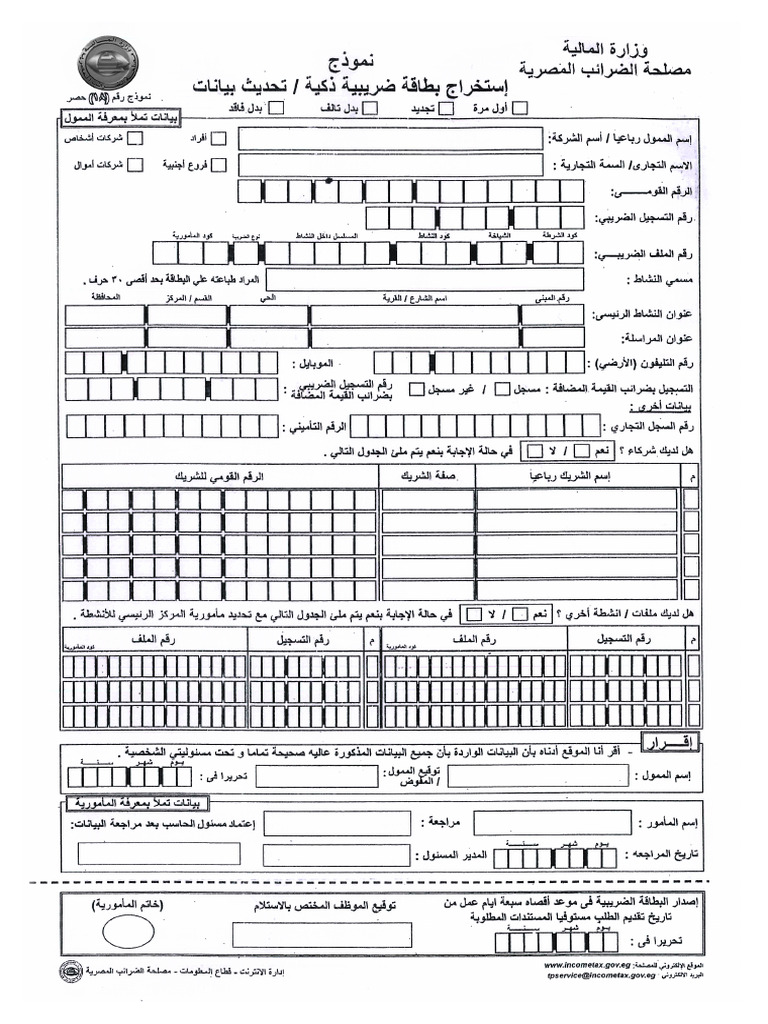 وزارة المالية
مصلحة الضرائب المصرية
نموذج
إستخراج بطاقة ضريبية ذكية / تحديث بيانات
نموذج رقم (١٨٩) حصر
أول مرة
تجديد
بدل تالف
بدل فاقد
بيانات تملأ بمعرفة الممول
إسم الممول رباعيا / أسم الشركة:
أفراد
شركات أشخاص
الاسم التجارى/ السمة التجارية :
فروع أجنبية
شركات أموال
الرقم القومـــــى:
رقم التسجيل الضريبي:
كود الشرطة الشياخة كود النشاط المسلسل داخل النشاط نوع الضريبة كود المأمورية
رقم الملف الضريبـــي:
مسمي النشاط :
المراد طباعته علي البطاقة بحد أقصى ٣٠ حرف .
رقم المبنى اسم الشارع / القرية الحي القسم / المركز المحافظة
عنوان النشاط الرئيسى:
عنوان المراسلة:
رقم التليفون (الأرضي) :
الموبايل :
التسجيل بضرائب القيمة المضافة : مسجل / غير مسجل
رقم التسجيل الضريبي بضرائب القيمة المضافة :
بيانات أخري :
رقم السجل التجاري :
الرقم التأميني :
هل لديك شركاء ؟ نعم / لا في حالة الإجابة بنعم يتم ملئ الجدول التالي .
م إسم الشريك رباعياً صفة الشريك الرقم القومي للشريك
هل لديك ملفات / انشطة أخري ؟ نعم / لا في حالة الإجابة بنعم يتم ملئ الجدول التالي مع تحديد مأمورية المركز الرئيسي للأنشطة .
م رقم التسجيل رقم الملف كود المأمورية م رقم التسجيل رقم الملف كود المأمورية
إقـــرار
- أقر أنا الموقع أدناه بأن البيانات الواردة بأن جميع البيانات المذكورة عاليه صحيحة تماما و تحت مسئوليتي الشخصية .
إسم الممول :
توقيع الممول : / المفوض
تحريرا فى :
يوم شهر ســنـة
بيانات تملأ بمعرفة المأمورية
إسم المأمور :
مراجعة :
إعتماد مسئول الحاسب بعد مراجعة البيانات:
يوم شهر ســنـة
تاريخ المراجعه :
المدير المسئول :
إصدار البطاقة الضريبية فى موعد أقصاه سبعة ايام عمل من
تاريخ تقديم الطلب مستوفيا المستندات المطلوبة
يوم شهر ســنـة
تحريرا فى :
توقيع الموظف المختص بالاستلام
(خاتم المأمورية)
الموقع الإلكتروني للمصلحة: www.incometax.gov.eg
البريد الالكتروني : tpservice@incometax.gov.eg
إدارة الانترنت - قطاع المعلومات - مصلحة الضرائب المصرية